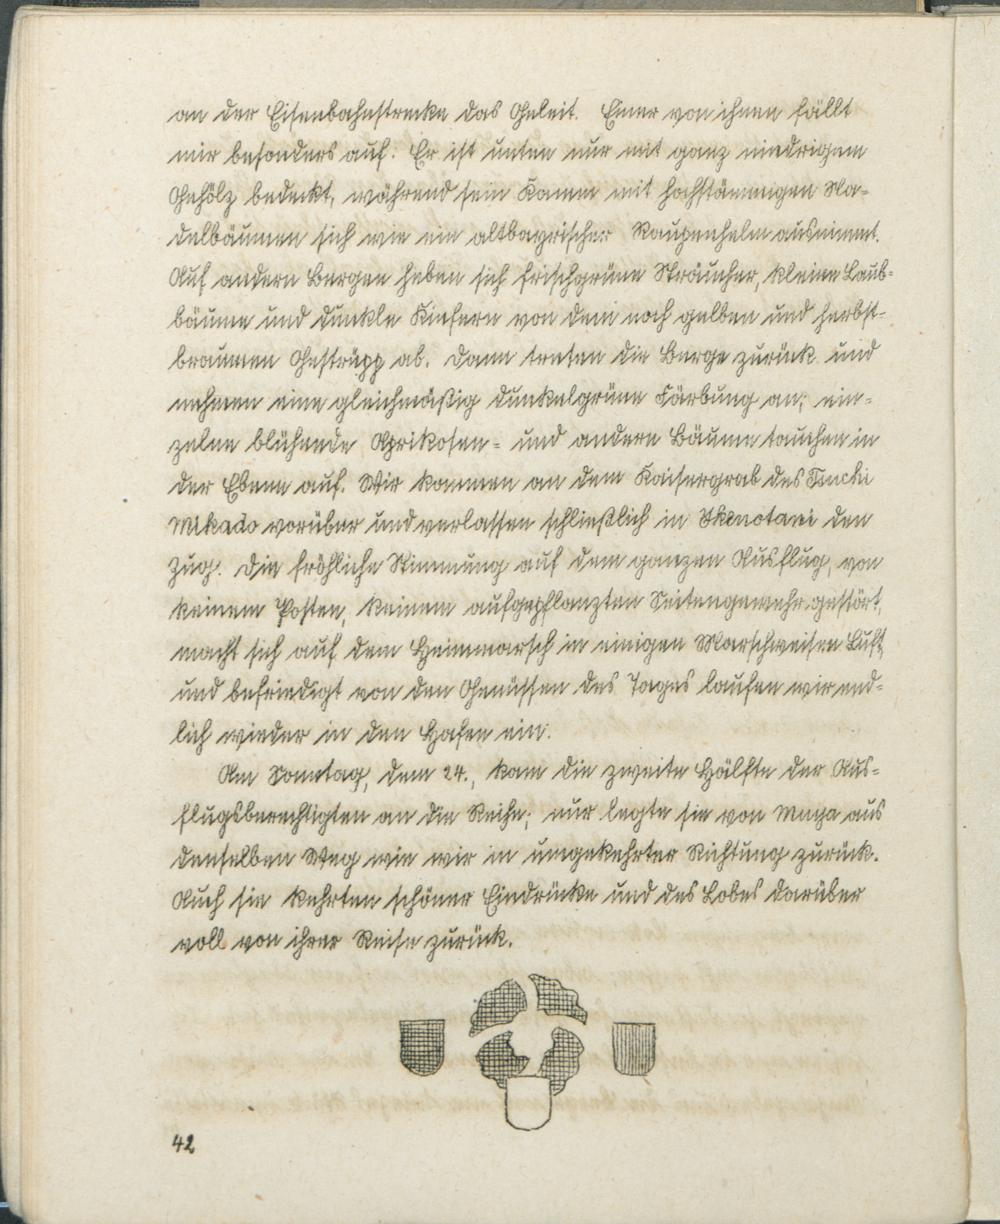 an der Eisenbahnstrecke das Geleit. Einer von ihnen fällt
mir besonders auf. Er ist unten nur mit ganz niedrigem
Gehölz bedeckt, während sein Kamm mit hochstämmigen Na-
delbäumen sich wie ein altbayrischer Raupenhelm ausnimmt.
Auf andern Bergen heben sich frischgrüne Sträucher, kleine Laub-
bäume und dunkle Kiefern von dem noch gelben und herbst-
braunen Gestrüpp ab. Dann treten die Berge zurück und
nehmen eine gleichmäßig dunkelgrüne Färbung an; ein-
zelne blühende Aprikosen- und andere Bäume tauchen in
der Ebene auf. Wir kommen an dem Kaisergrab des Tenchi
Mikado vorüber und verlassen schließlich in Ikenotani den
Zug. Die fröhliche Stimmung auf dem ganzen Ausflug, von
keinem Posten, keinem aufgepflanzten Seitengewehr gestört,
macht sich auf dem Heimmarsch in einigen Marschweisen Luft,
und befriedigt von den Genüssen des Tages laufen wir end-
lich wieder in den Hafen ein.
Am Sonntag, dem 24., kam die zweite Hälfte der Aus-
flugsberechtigten an die Reihe; nur legte sie von Muya aus
denselben Weg wie wir in umgekehrter Richtung zurück.
Auch sie kehrten schöner Eindrücke und des Lobes darüber
voll von ihrer Reise zurück.
42